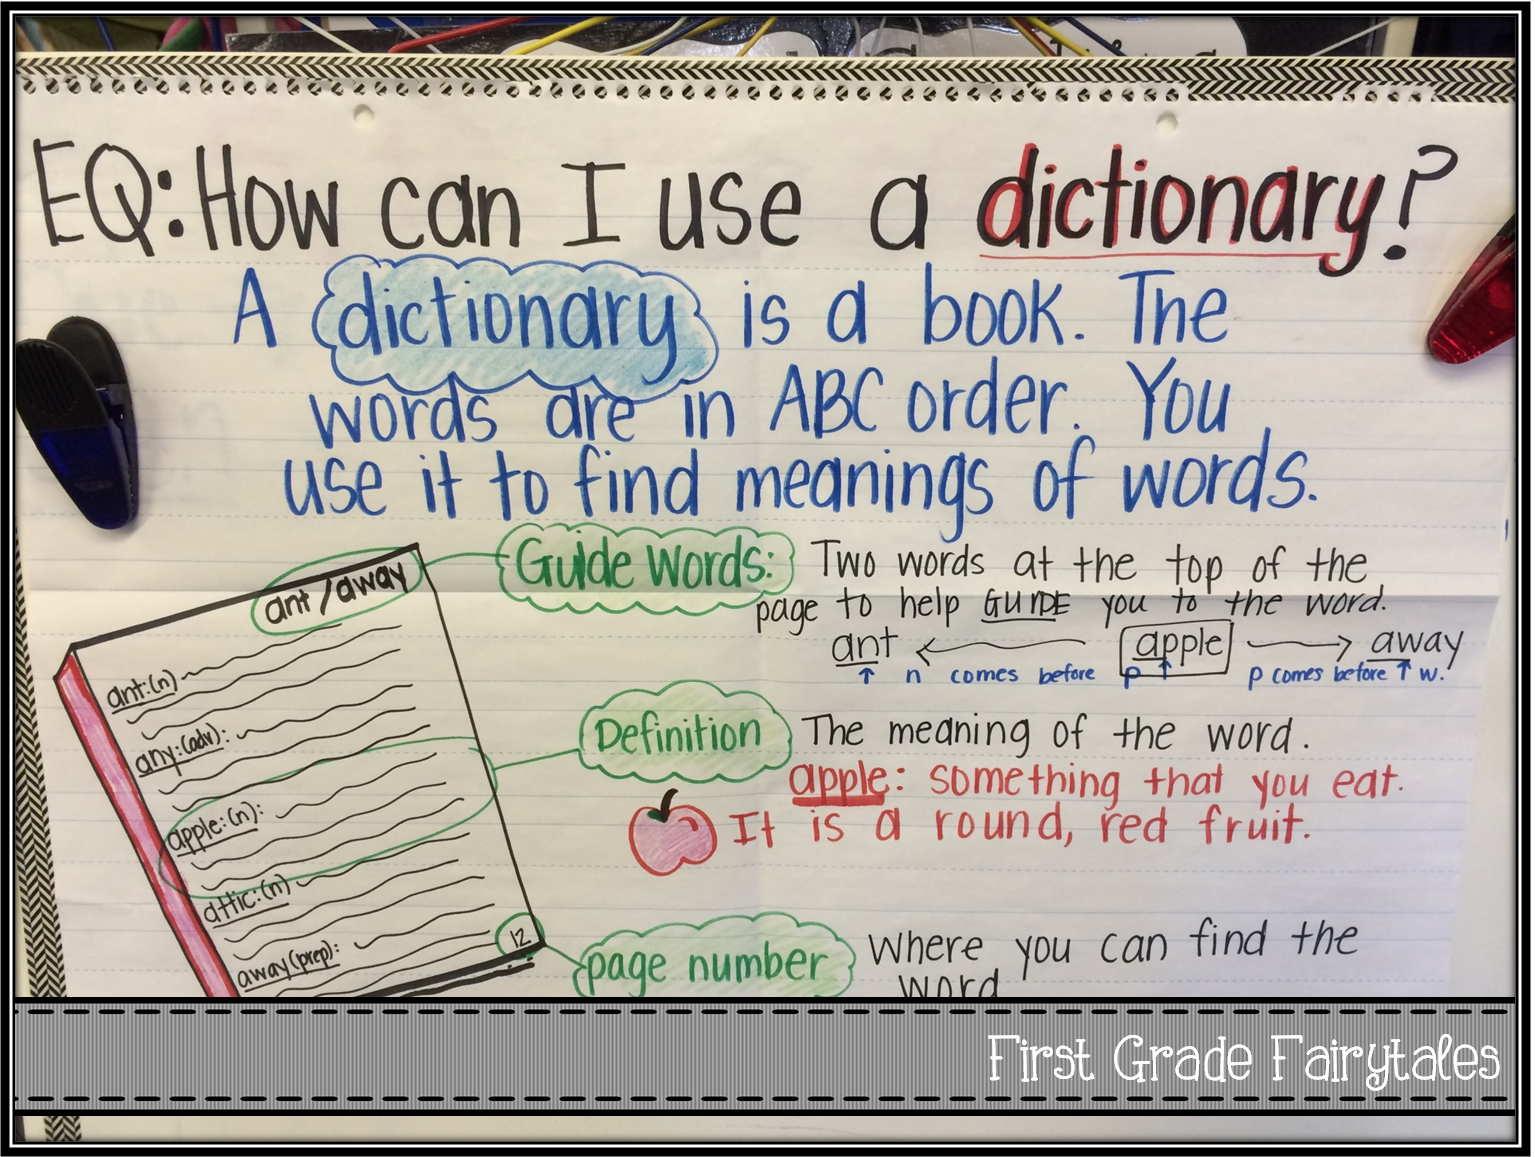 EQ: How can I use a dictionary?
A dictionary is a book. The
words are in ABC order. You
use it to find meanings of words.
Guide Words: Two words at the top of the
page to help GUIDE you to the word.
ant ← apple → away
↑ n comes before p ↑ p comes before ↑ w.
Definition The meaning of the word.
apple: something that you eat.
It is a round, red fruit.
page number Where you can find the
word
ant/away
ant:(n)
any:(adv):
apple:(n):
attic:(n)
away(prep):
12
First Grade Fairytales